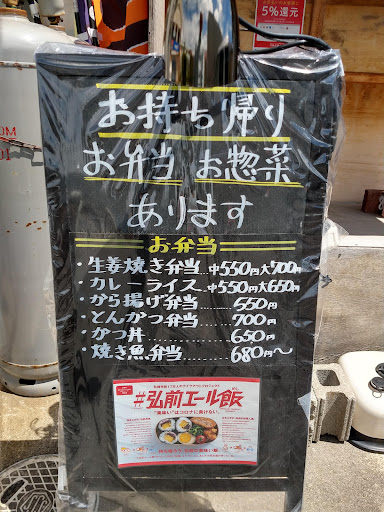 5%還元
お持ち帰り
お弁当 お惣菜
あります
お弁当
・生姜焼き弁当 中550円大700円
・カレーライス 中550円大650円
・から揚げ弁当 550円
・とんかつ弁当 700円
・かつ丼 650円
・焼き魚弁当 680円〜
#弘前エール飯
"美味い"はコロナに負けない。